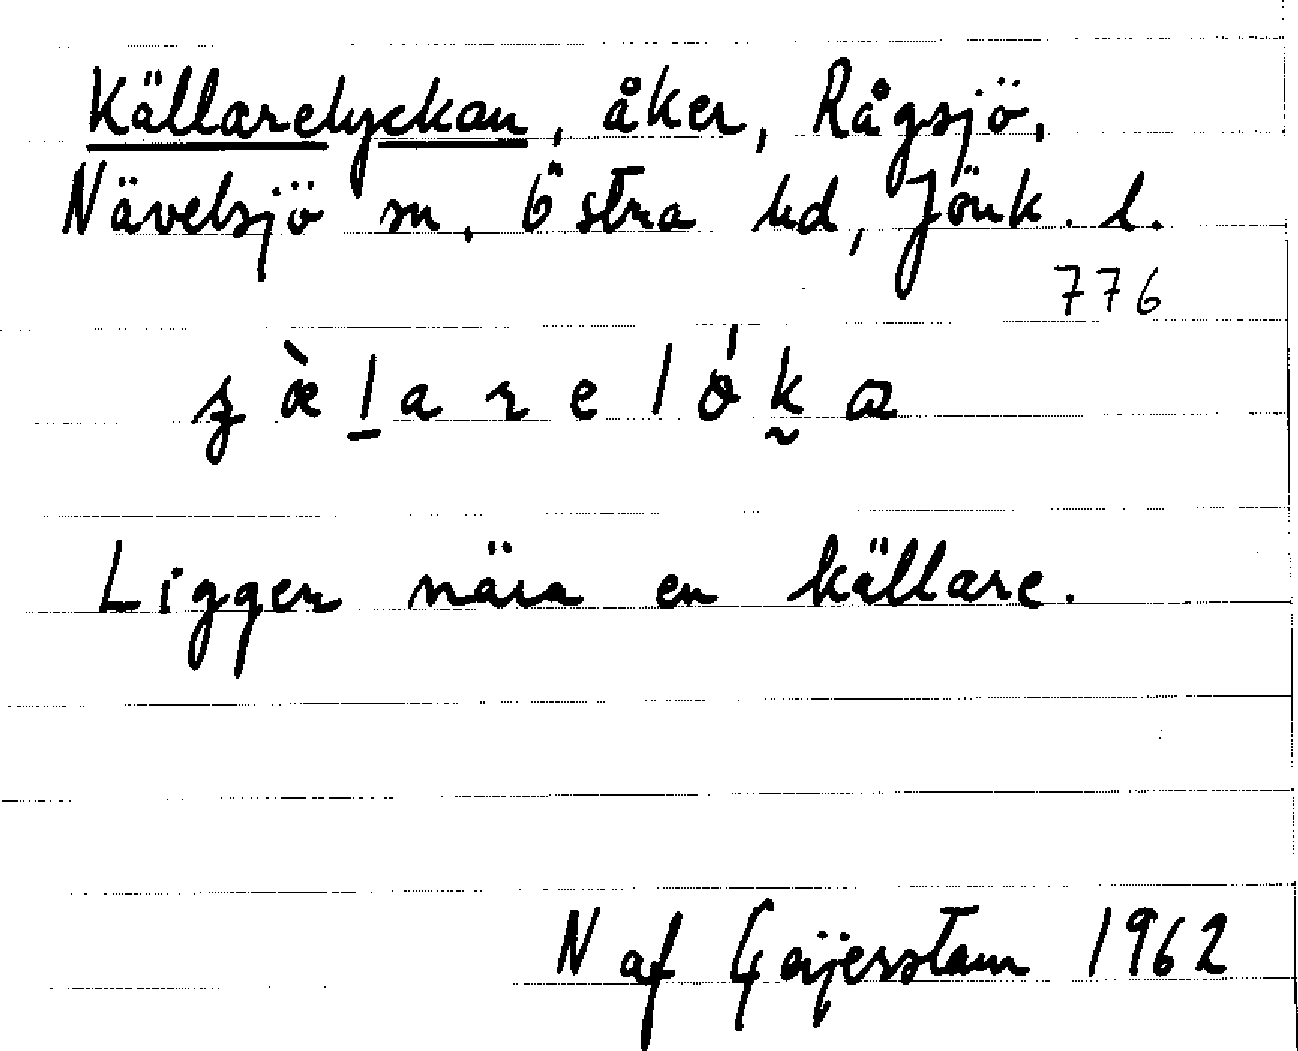 Källarelyckan, åker, Rågsjö,
Nävelsjö sn, Östra hd, Jönk. l.
776
Ligger nära en källare.
N af Geijerstam 1962